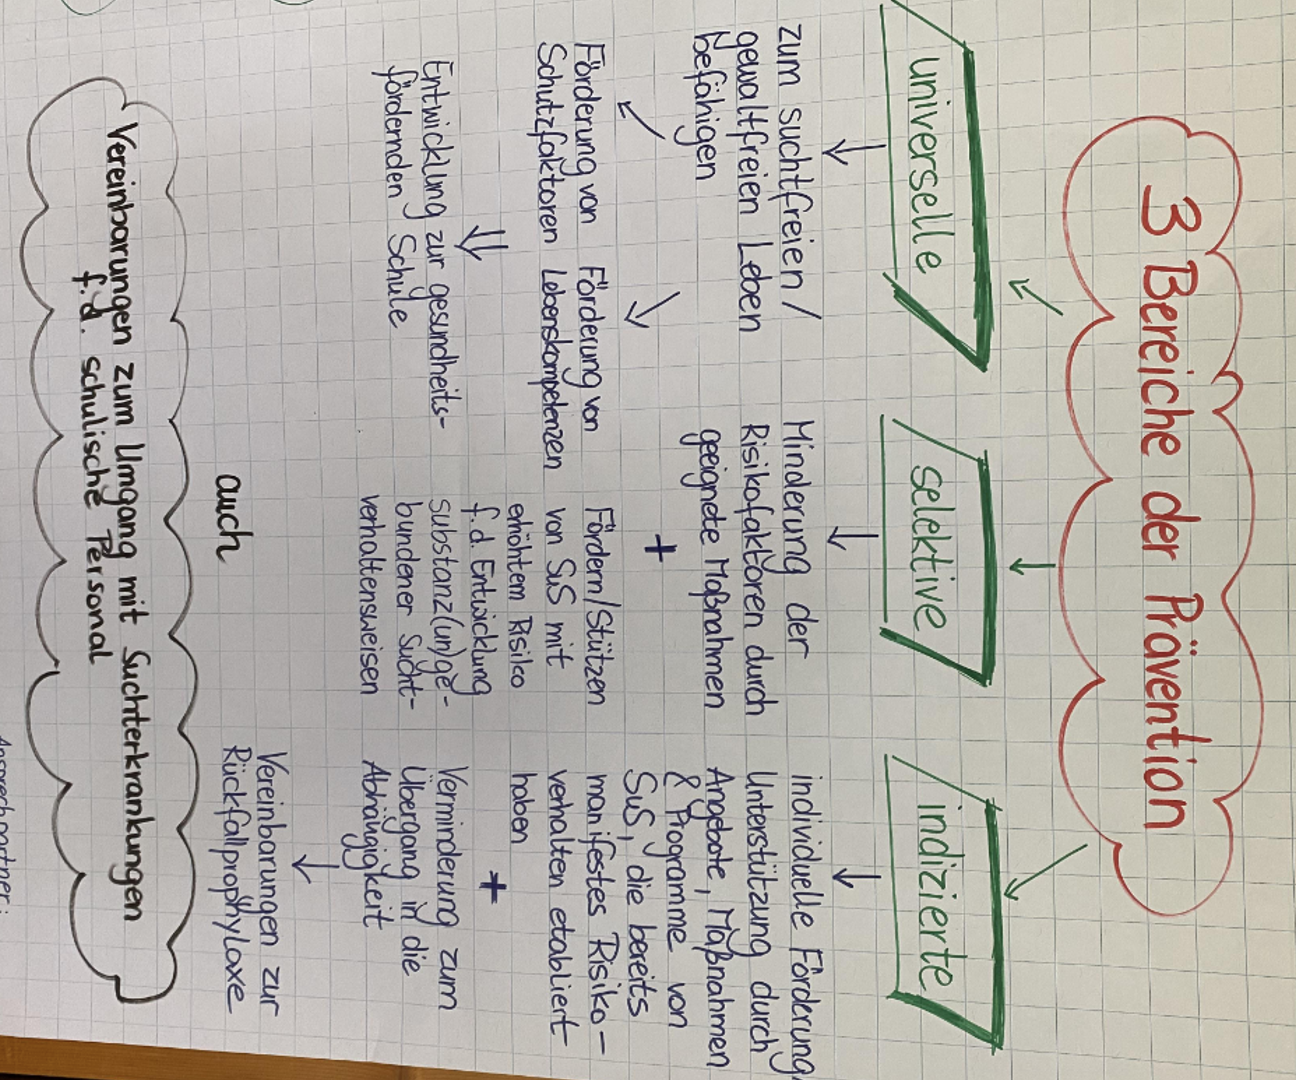 3 Bereiche der Prävention
universelle
zum suchtfreien/
gewaltfreien Leben
befähigen
Förderung von
Schutzfaktoren
Förderung von
Lebenskompetenzen
Entwicklung zur gesundheits-
fördernden Schule
selektive
Minderung der
Risikofaktoren durch
geeignete Maßnahmen
+
Fördern/Stützen
von SuS mit
erhöhtem Risiko
f.d. Entwicklung
substanz(un)ge-
bundener Sucht-
verhaltensweisen
indizierte
individuelle Förderung
Unterstützung durch
Angebote, Maßnahmen
& Programme von
SuS, die bereits
manifestes Risiko-
verhalten etabliert
haben
+
Verminderung zum
Übergang in die
Abhängigkeit
Vereinbarungen zur
Rückfallprophylaxe
auch
Vereinbarungen zum Umgang mit Suchterkrankungen
f.d. schulische Personal
Ansprechpartner: